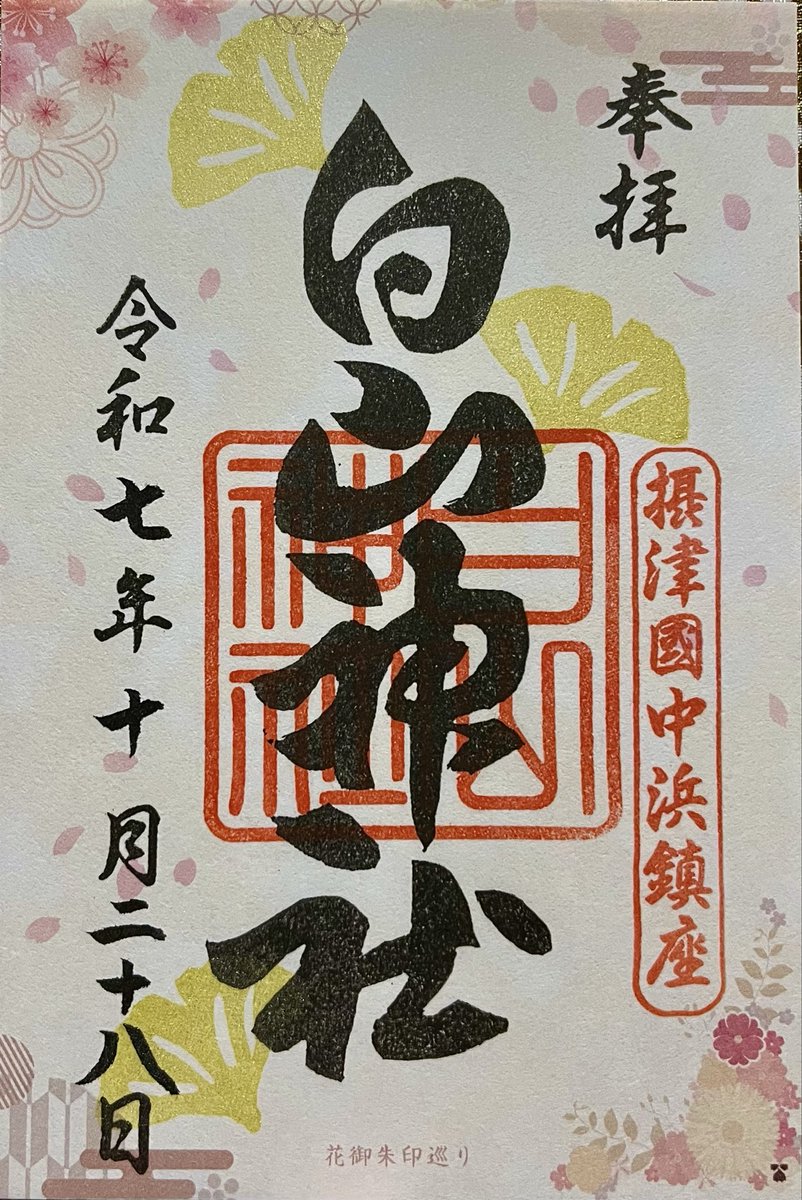 奉拝
摂津國中浜鎮座
白山神社
白山神社
令和七年十月二十八日
花御朱印巡り